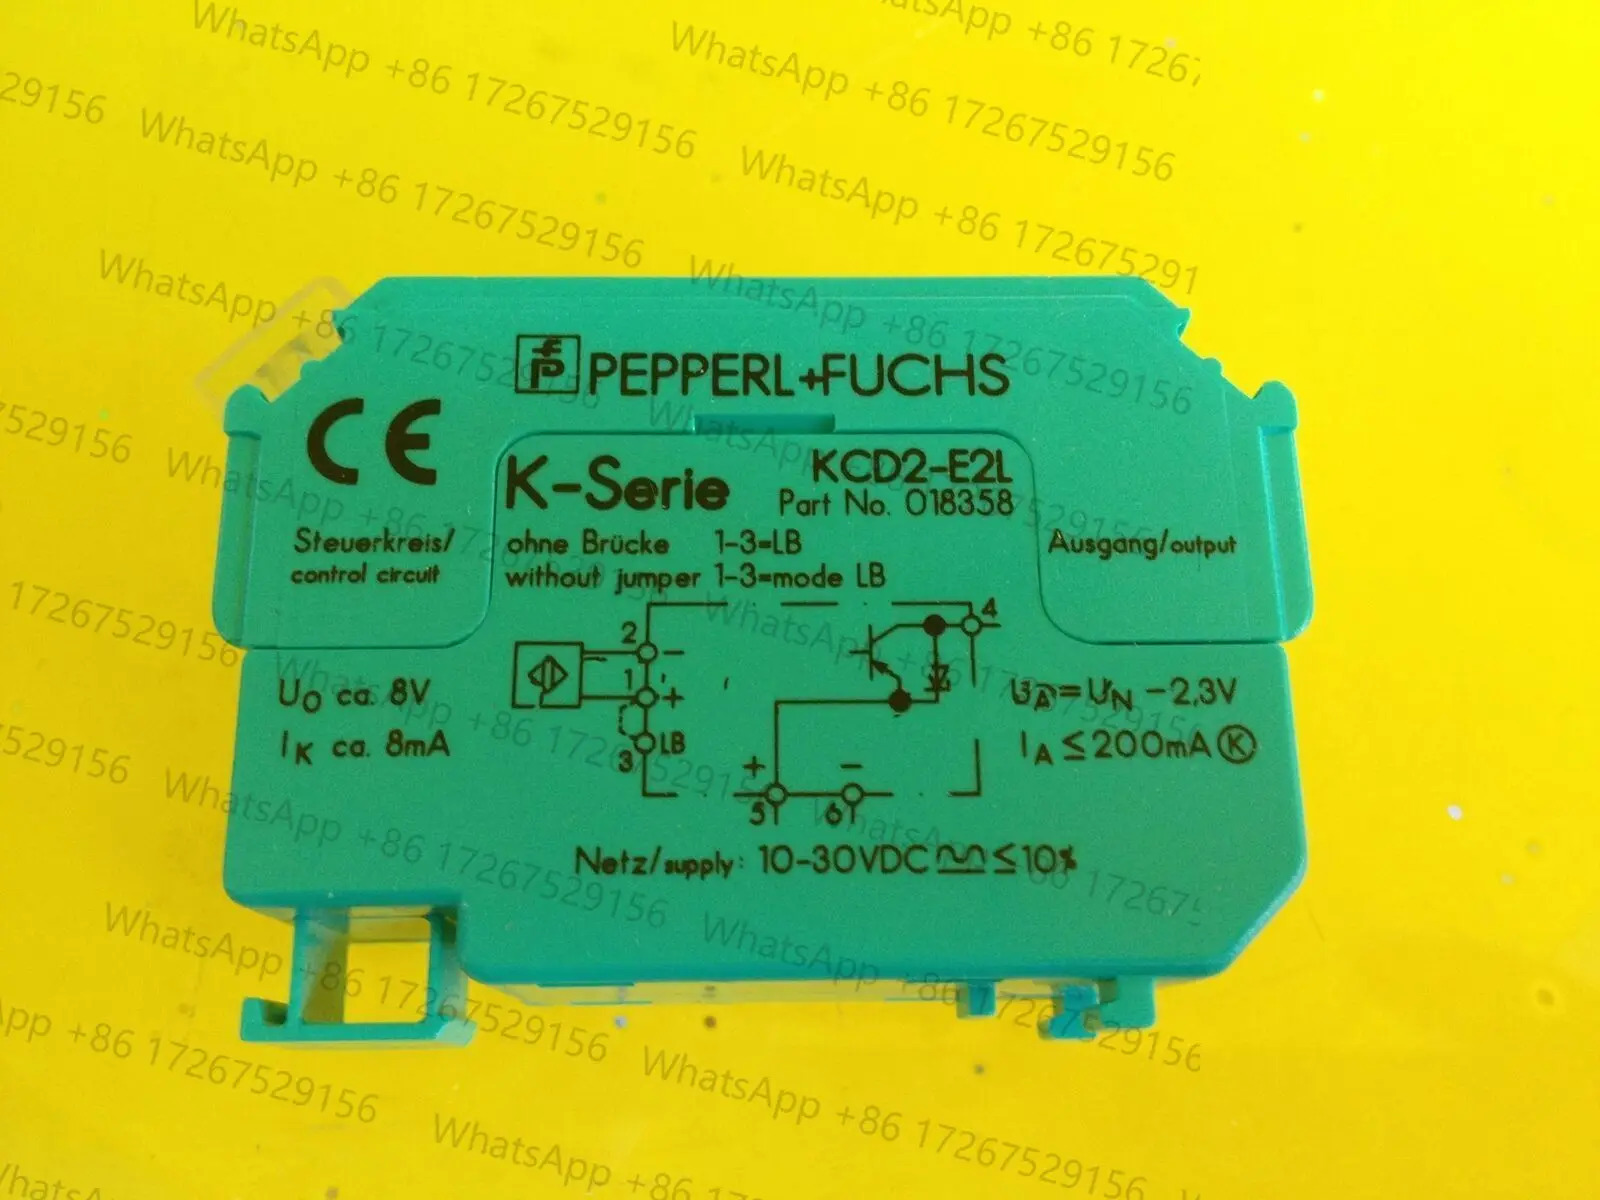 WhatsApp +86 17267529156
WhatsApp +86 17267
29156
WhatsApp +86 17267529156
WhatsApp +86 17267529156
WhatsApp +86 172675291
PEPPERL+FUCHS
CE
K-Serie
KCD2-E2L
Part No. 018358
Steuerkreis/
control circuit
ohne Brücke 1-3=LB
without jumper 1-3=mode LB
Ausgang/output
4
2
-
1
+
LB
3
U0 ca. 8V
IK ca. 8mA
UA=UN -2,3V
IA ≤ 200mA Ⓚ
+
-
5
6
Netz/supply: 10-30VDC ≤10%
WhatsApp +86 17267529156
WhatsApp +86 17267529156
WhatsApp +86 17267529156
WhatsApp +86 17267529156
WhatsApp +86 17267529156
App +86 17267529156
WhatsApp +86 17267529156
WhatsApp +86 17267529156